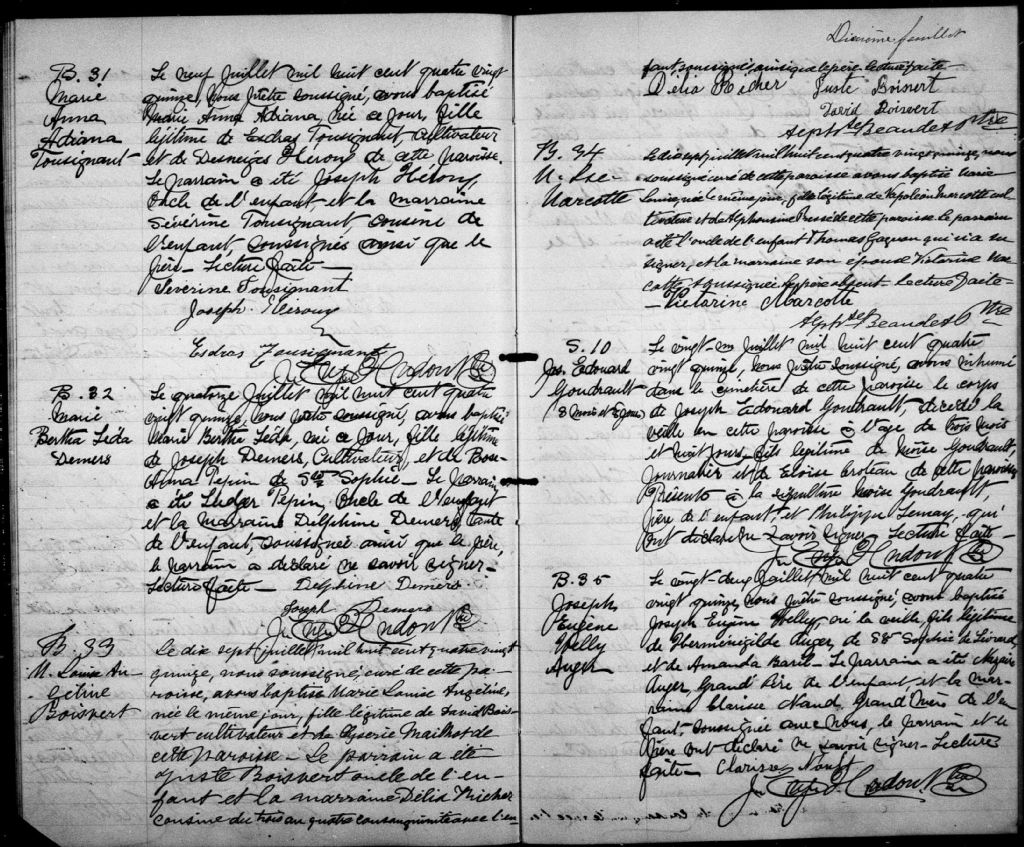 B. 31
Marie
Anna
Adriana
Tousignant
Le neuf Juillet mil huit cent quatre vingt
quinze, nous prêtre soussigné, avons baptisé
Marie Anna Adriana, née ce jour, fille
légitime de Esdras Tousignant, Cultivateur
et de Desneiges Herou de cette paroisse.
Le parrain a été Joseph Herou,
Oncle de l'enfant et la marraine
Séverine Tousignant, cousine de
l'enfant, soussignés ainsi que le
père - Lecture faite -
Severine Tousignant
Joseph Heroux
Esdras Tousignant
B. 32
Marie
Bertha Léda
Demers
Le quatorze Juillet mil huit cent quatre
vingt quinze, nous prêtre soussigné, avons baptisé
Marie Bertha Léda, née ce jour, fille légitime
de Joseph Demers, Cultivateur, et de Rose-
Anna Pepin de Ste Sophie - Le parrain
a été Léger Pepin, Oncle de l'enfant
et la marraine Delphine Demers, tante
de l'enfant, soussignée ainsi que le père,
le parrain a déclaré ne savoir signer -
Lecture faite - Delphine Demers
Joseph Demers
B. 33
M. Louise An-
geline
Boisvert
Le dix sept juillet mil huit cent quatre vingt
quinze, nous soussigné, curé de cette pa-
roisse, avons baptisé Marie Louise Angeline,
née le même jour, fille légitime de David Bois-
vert cultivateur et de Mailhot de
cette paroisse - Le parrain a été
Juste Boisvert oncle de l'en-
fant et la marraine Délia Richer
cousine du trois au quatre consanguinité avec l'en-
Dixième feuillet
fant, soussigné, ainsi que le père. Lecture faite -
Délia Richer Juste Boisvert
David Boisvert
Beaudet Ptre
B. 34
M. Lse
Marcotte
Le dix sept juillet mil huit cent quatre vingt quinze, nous
soussigné curé de cette paroisse avons baptisé Marie
Louise, née le même jour, fille légitime de Napoléon Marcotte cul-
tivateur et de Alphonsine de cette paroisse le parrain
a été l'oncle de l'enfant Thomas Gagnon qui n'a su
signer, et la marraine son épouse Victorine Mar-
cotte, soussignée le père absent - Lecture faite -
Victorine Marcotte
Beaudet Ptre
S. 10
Jos. Edouard
Goudrault
3 mois et 8 jours
Le vingt-un Juillet mil huit cent quatre
vingt quinze, nous prêtre soussigné, avons inhumé
dans le cimetière de cette paroisse le corps
de Joseph Edouard Goudrault, décédé la
veille en cette paroisse à l'age de trois mois
et huit jours, fils légitime de Moïse Goudrault,
Journalier et de Eloise Croteau de cette paroisse
Présents à la sépulture Moïse Goudrault,
père de l'enfant, et Philippe Lemay, qui
ont déclaré ne savoir signer. Lecture faite -
B. 35
Joseph
Eugène
Welly
Auger
Le vingt-deux juillet mil huit cent quatre
vingt quinze, nous prêtre soussigné, avons baptisé
Joseph Eugène Welly, né la veille, fils légitime
de Herménégilde Auger, de Ste Sophie de Lévrard,
et de Amanda Baril - Le parrain a été
Auger, Grand Père de l'enfant et la mar-
raine Clarisse Nault, Grand Mère de l'en-
fant, soussignée avec nous, le parrain et le
père ont déclaré ne savoir signer - Lecture
faite - Clarisse Nault